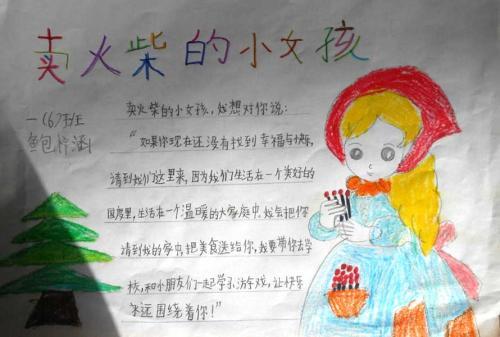 卖火柴的小女孩
一(6)班
鲍梓涵
卖火柴的小女孩,我想对你说:
“如果你现在还没有找到幸福与快乐,
请到我们这里来,因为我们生活在一个美好的
国度里,生活在一个温暖的大家庭中,我会把你
请到我的家中,把美食送给你,我要带你去学
校,和小朋友们一起学习、游戏,让快乐
永远围绕着你!”